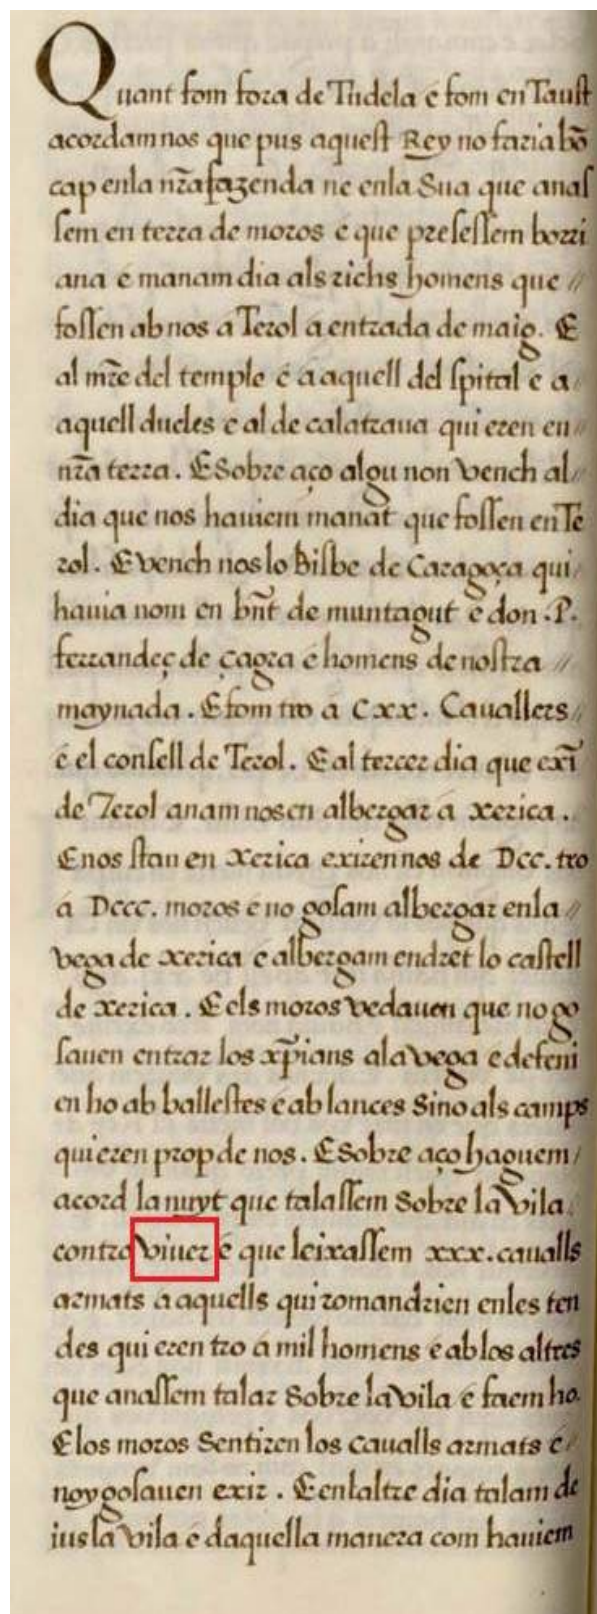 Quant fom fora de Tudela e fom en Taust
acordam nos que pus aquest Rey no faria bõ
cap en la nr̃a fazenda ne en la Sua que anas
sem en terra de moros e que presessem borri
ana e manam dia als richs homens que //
fossen ab nos a Terol a entrada de maig. E
al mr̃e del temple e a aquell del spital e a
aquell ducles e al de calatraua qui eren en //
nr̃a terra. E Sobre aço algu non vench al //
dia que nos hauiem manat que fossen en Te
rol. E vench nos lo Bisbe de Caragoça qui
hauia nom en bñt de muntagut e don .P.
ferrandeç de çagra e homens de nostra //
maynada. E fom tro a Cxx. Cauallers //
e el consell de Terol. E al tercer dia que exĩ
de Terol anam nos en albergar a xerica.
E nos stan en Xerica exiren nos de Dcc. tro
a Dccc. moros e no gosam albergar en la //
vega de xerica e albergam endret lo castell
de xerica. E els moros vedauen que no go
sauen entrar los xp̃ians a la vega e defeni
en ho ab ballestes e ab lances Sino als camps
qui eren prop de nos. E Sobre aço haguem /
acord la nuyt que talassem Sobre la vila
contra viuer e que leixassem xxx. caualls
armats a aquells qui romandrien en les ten
des qui eren tro a mil homens e ab los altres
que anassem talar Sobre la vila e faem ho.
E los moros Sentiren los caualls armats e /
noy gosauen exir. E en laltre dia talam de
ius la vila e daquella manera com hauiem